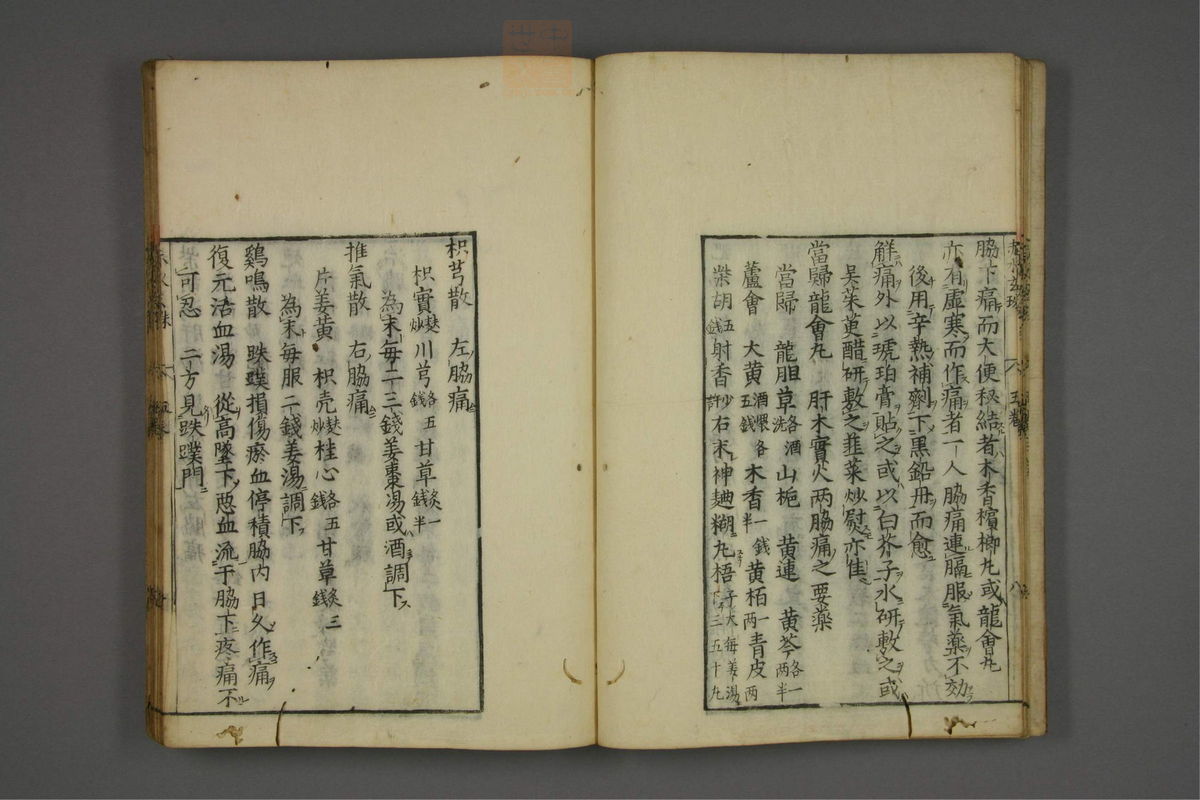 脇下痛而大便秘結者木香檳榔丸或龍會丸
亦有虛寒而作痛者一人脇痛連膈服氣藥不効
後用辛熱補劑下黑鉛丹而愈
解痛外以琥珀膏貼之或以白芥子水研敷之或
吳茱萸醋研敷之韮菜炒熨亦佳
當歸龍會丸 肝木實火两脇痛之要藥
當歸 龍胆草各酒洗 山梔 黃連 黃芩各一两半
蘆會 大黃酒煨各五錢 木香一錢半 黃栢一两 青皮一两
柴胡五錢 射香少許 右末神麯糊丸梧子大每姜湯下三五十丸
枳芎散 左脇痛
枳實麩炒 川芎各五錢 甘草炙一錢半
為末每二三錢姜棗湯或酒調下
推氣散 右脇痛
片姜黃 枳壳麩炒 桂心各五錢 甘草炙三錢
為末每服二錢姜湯調下
鷄鳴散 跌蹼損傷瘀血停積脇内日久作痛
復元活血湯 從高墜下惡血流于脇下疼痛不
可忍 二方見跌蹼門